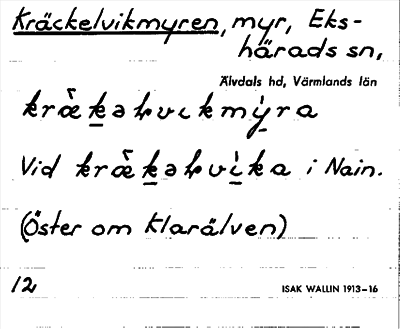 Kräckelvikmyren, myr, Eks-
härads sn,
Älvdals hd, Värmlands län
Vid
i Nain.
(Öster om Klarälven)
12
ISAK WALLIN 1913–16